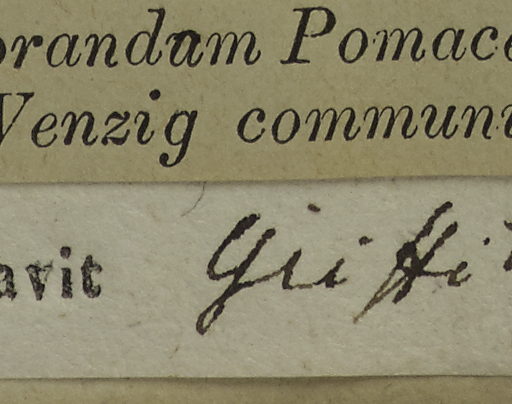 orandum Pomace
Wenzig communi
avit Griffi